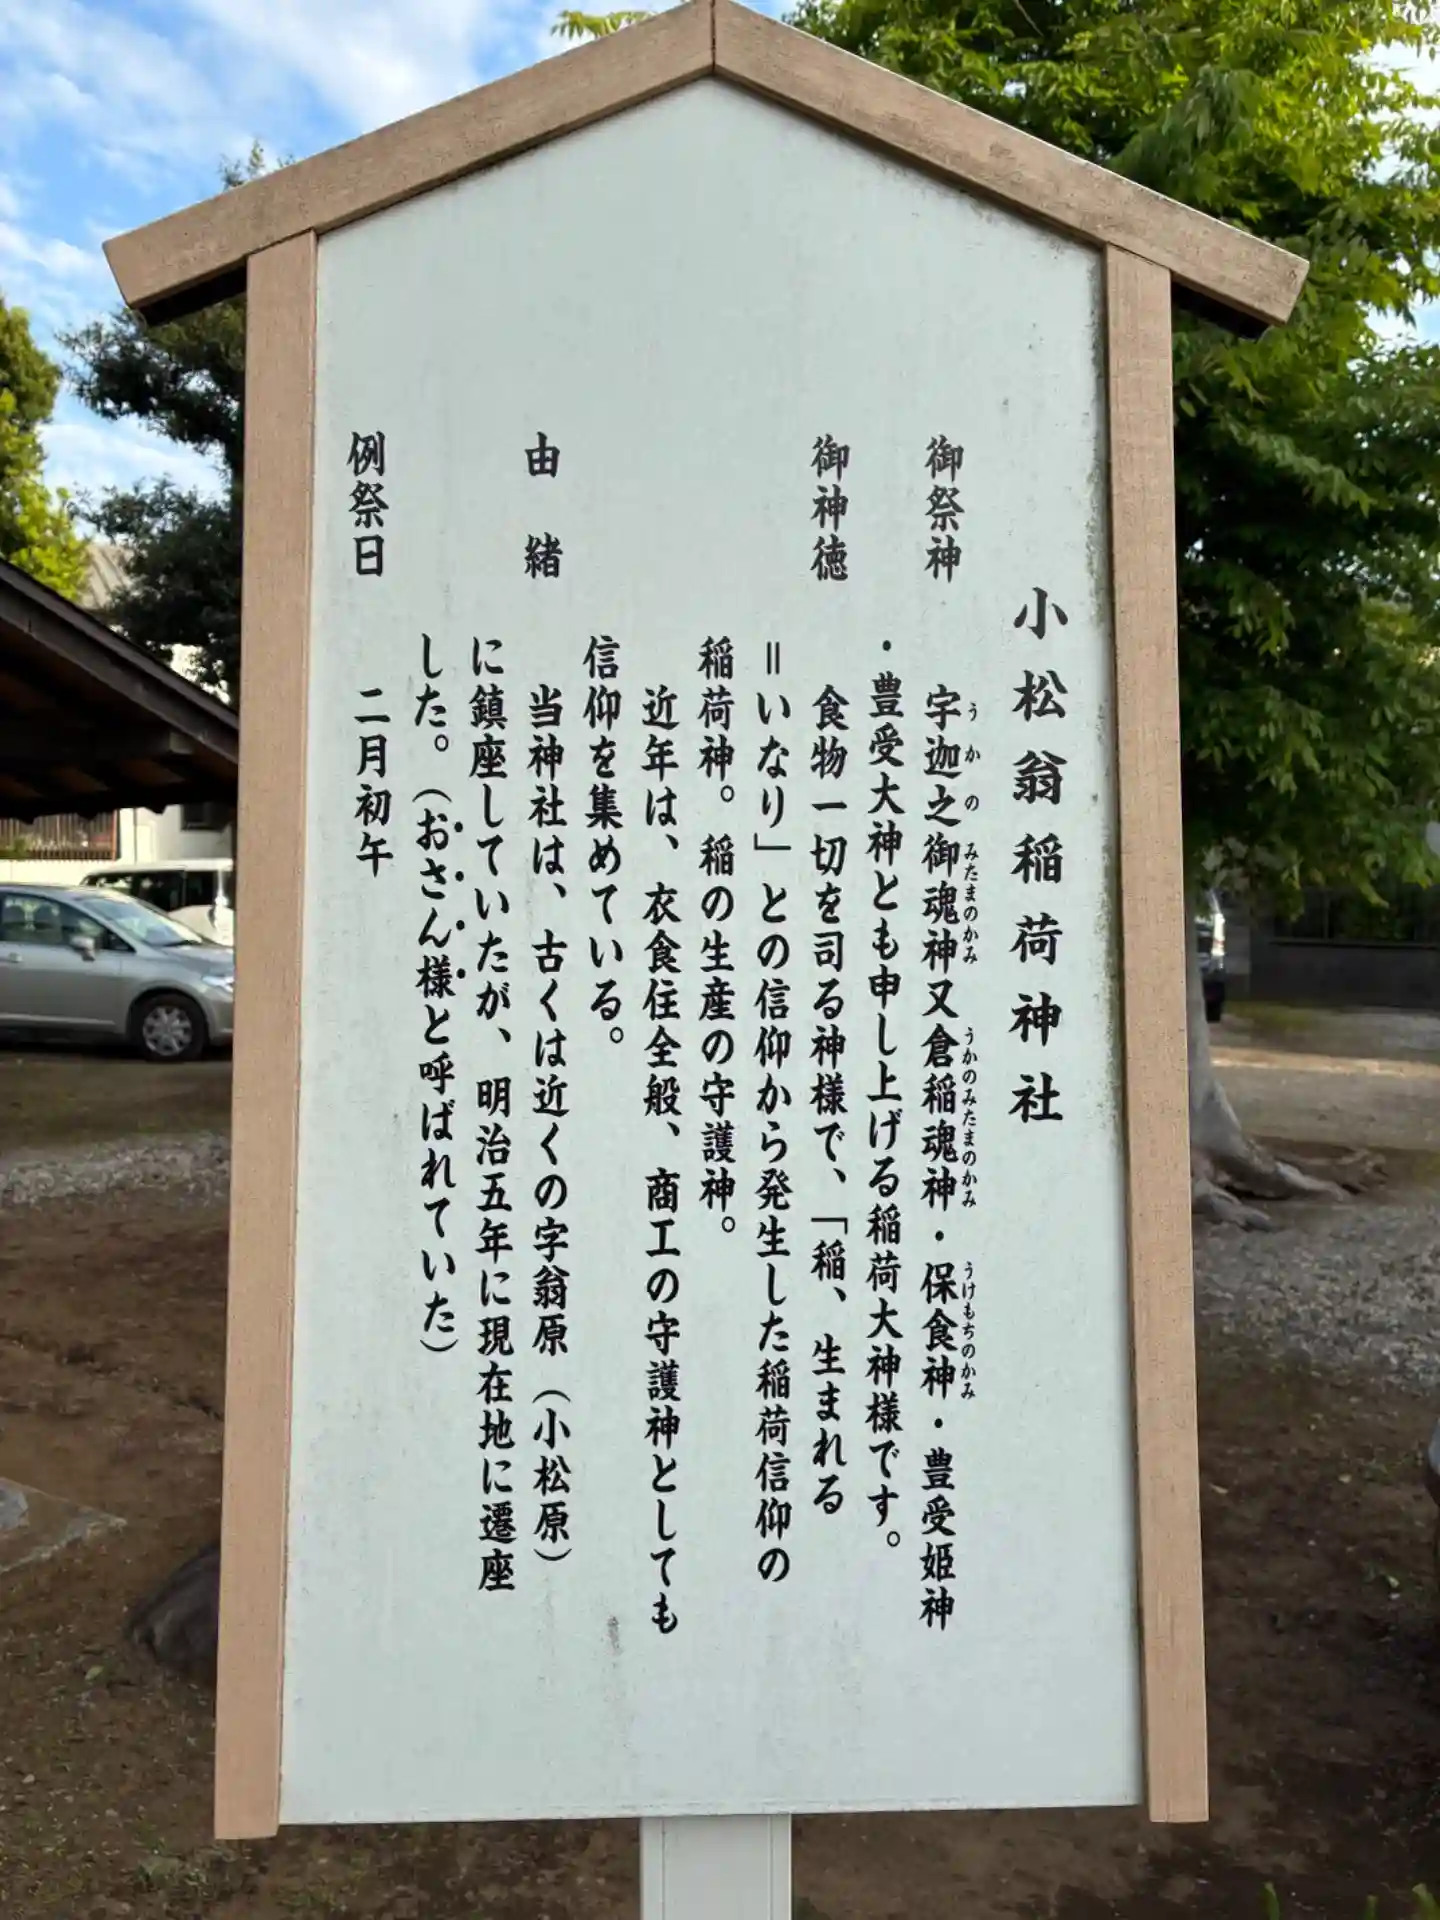 小松翁稲荷神社
御祭神 宇迦之御魂神又倉稲魂神・保食神・豊受姫神
うかの みたまのかみ うかのみたまのかみ うけもちのかみ
・豊受大神とも申し上げる稲荷大神様です。
御神徳 食物一切を司る神様で、「稲、生まれる
＝いなり」との信仰から発生した稲荷信仰の
稲荷神。稲の生産の守護神。
近年は、衣食住全般、商工の守護神としても
信仰を集めている。
由緒 当神社は、古くは近くの字翁原（小松原）
に鎮座していたが、明治五年に現在地に遷座
した。（おさん様と呼ばれていた）
例祭日 二月初午